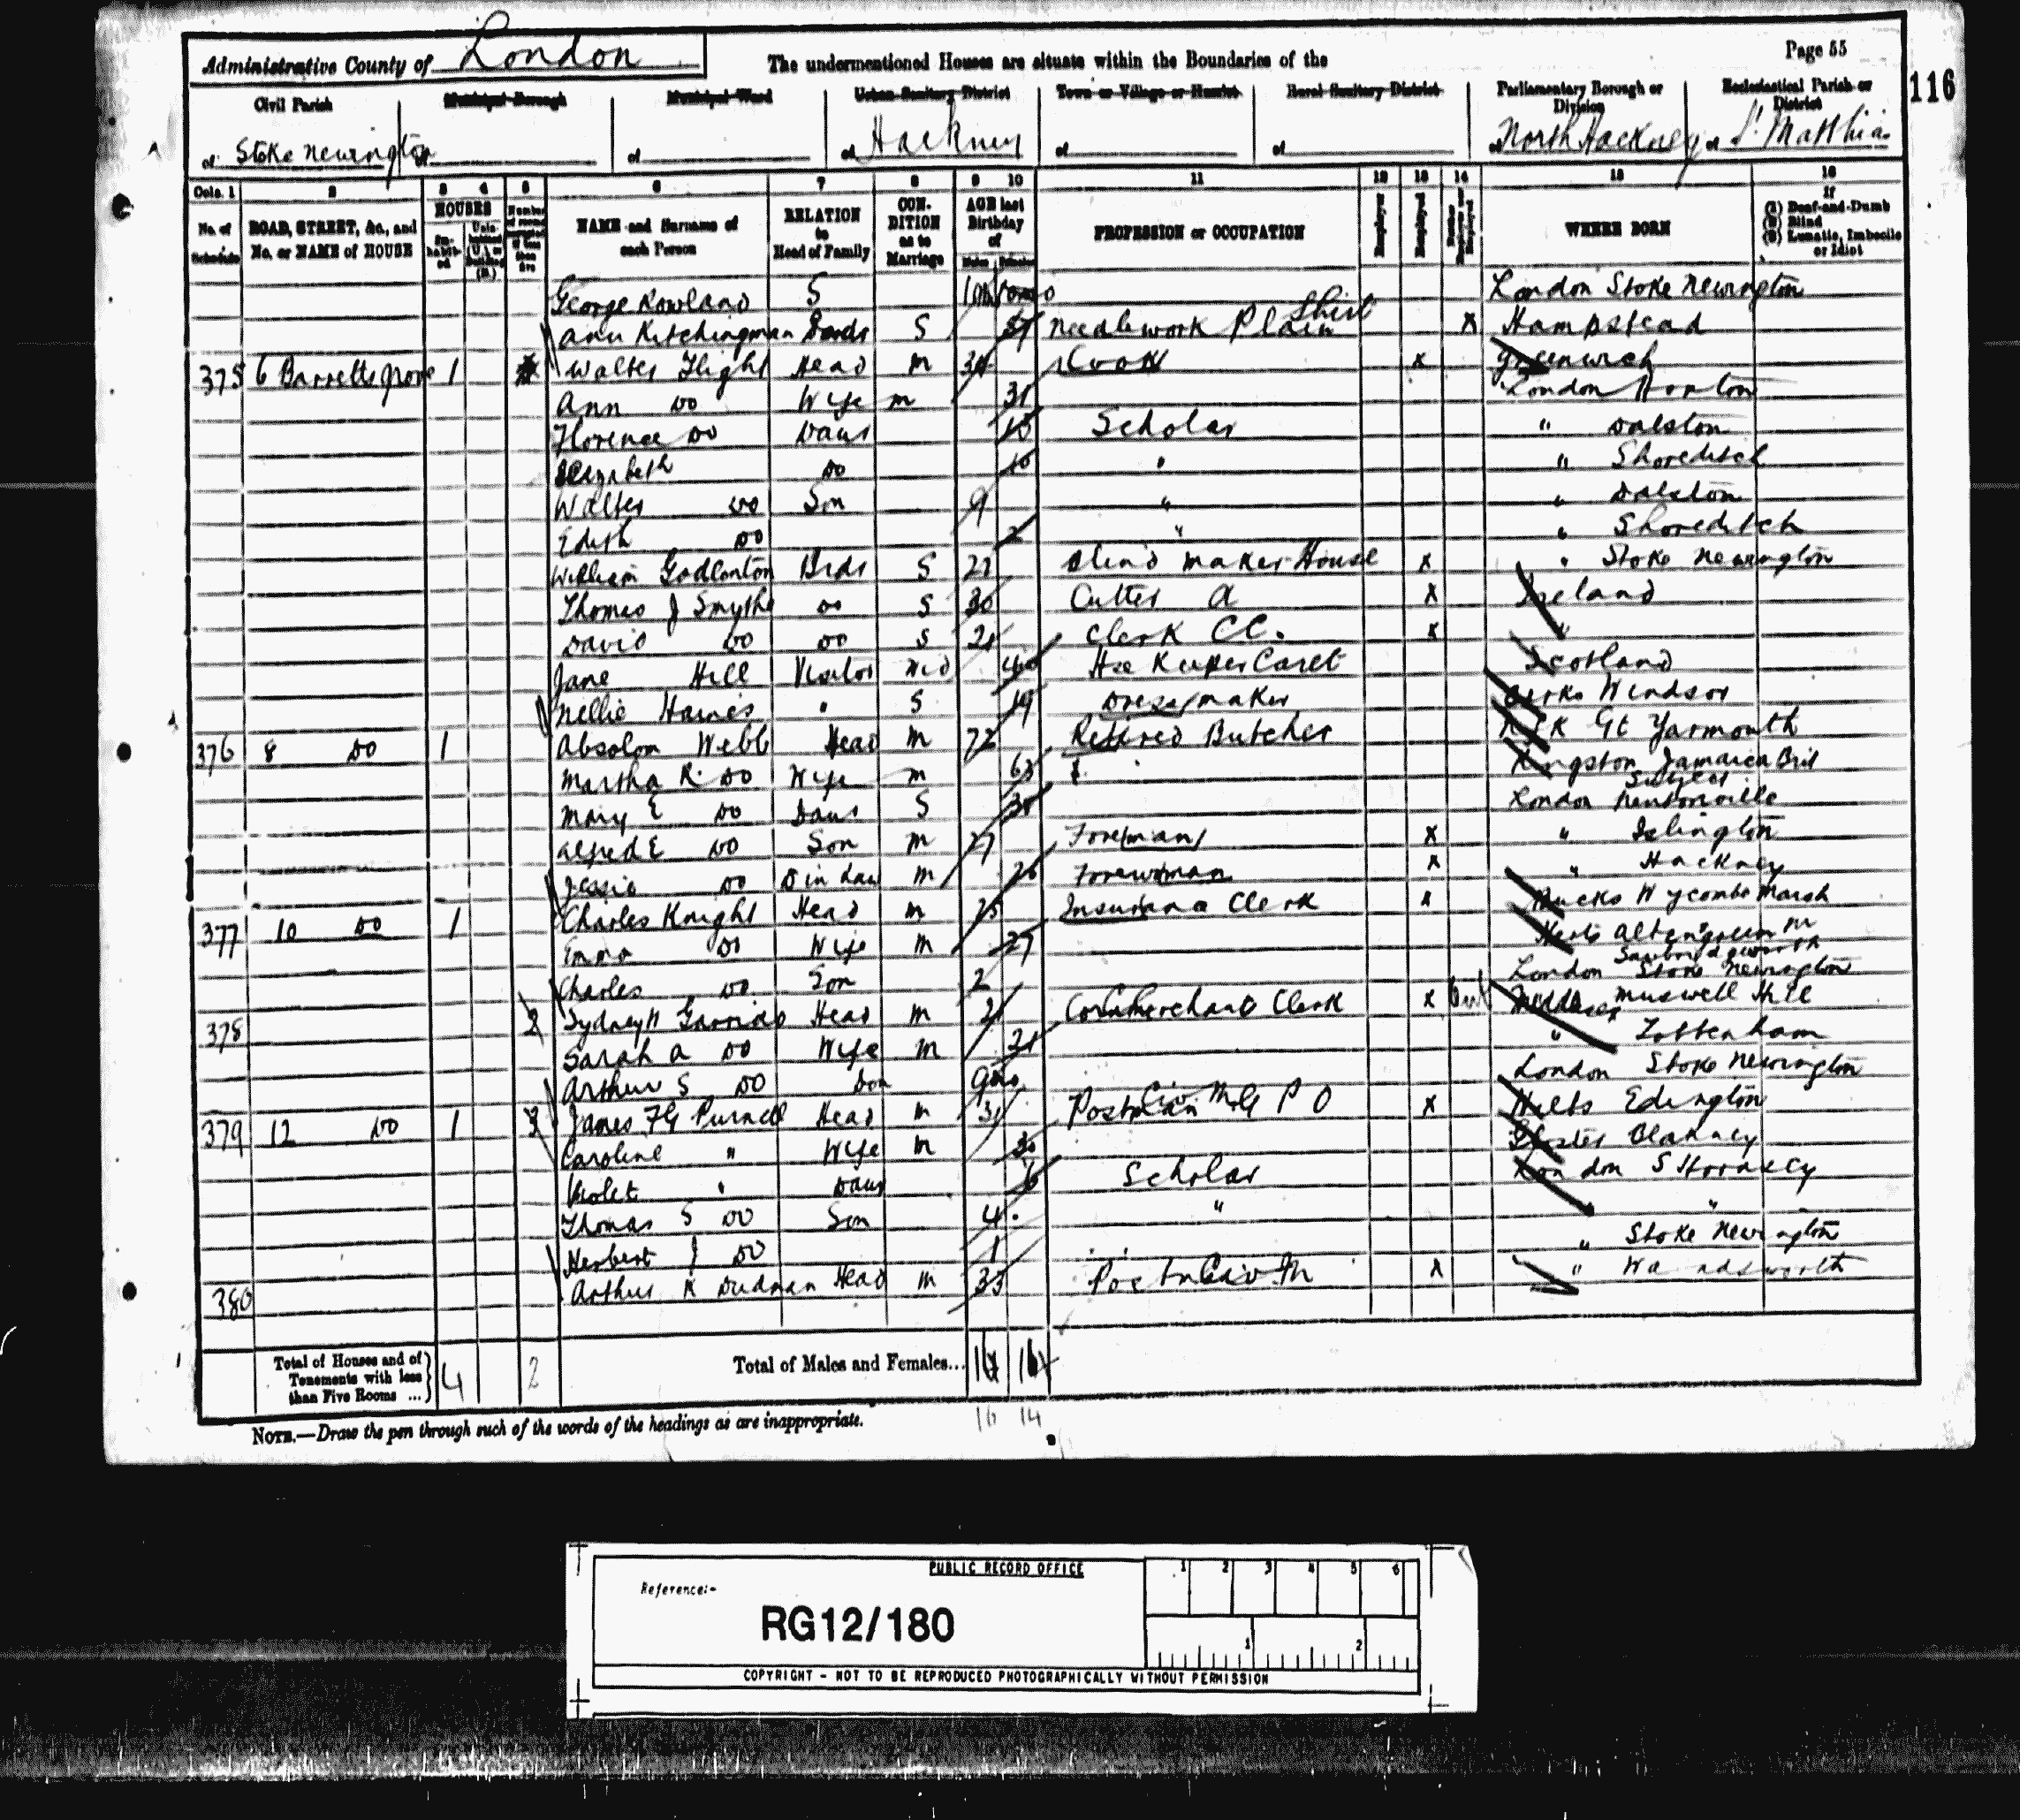 Administrative County of London
The undermentioned Houses are situate within the Boundaries of the
Page 55
116
Civil Parish Municipal Borough Municipal Ward Urban Sanitary District Town or Village or Hamlet Rural Sanitary District Parliamentary Borough or Division Ecclesiastical Parish or District
of Stoke Newington of of of Hackney of of of North Hackney of St Matthias
Cols. 1 2 3 4 5 6 7 8 9 10 11 12 13 14 15 16
No. of Schedule ROAD, STREET, &c., and No. or NAME of HOUSE HOUSES Inhabited NAME and Surname of each Person RELATION to Head of Family CONDITION as to Marriage AGE last Birthday of Males Females PROFESSION or OCCUPATION Employer Employed WHERE BORN If (1) Deaf-and-Dumb (2) Blind (3) Lunatic, Imbecile or Idiot
George Rowland S London Stoke Newington
Ann Kitchingman S 57 Needlework Plain Shirt x Hampstead
375 6 Barretts Grove 1 Walter Flight Head M 34 Cook x Greenwich
Ann Do Wife M 31 London Hoxton
Florence Do Daur Scholar " Dalston
Elizabeth Do 10 " " Shoreditch
Walter Do Son 9 " " Dalston
Edith Do 2 " " Shoreditch
William Godlonton S Blind Maker House x " Stoke Newington
Thomas J Smythe Do S 30 Cutter x Ireland
David Do Do S 21 Clerk CC. x "
Jane Hill Visitor Wid 40 Hse Keeper Scotland
Nellie Haines " S 19 Dressmaker Berks Windsor
376 8 Do 1 Absolon Webb Head M 72 Retired Butcher Gt Yarmouth
Martha R. Do Wife M 63 Kingston Jamaica Brit Subject
Mary E Do Daur S London Pentonville
Alfred E Do Son M 27 Foreman x " Islington
Jessie Do D in law M 26 Forewoman x " Hackney
377 10 Do 1 Charles Knight Head M 25 Insurance Clerk x Bucks Wycombe Marsh
Emma Do Wife M 27 Herts
Charles Do Son 2 London Stoke Newington
378 2 Sydney H Head M 21 Corn Merchants Clerk x Middlesex Muswell Hill
Sarah A Do Wife M 21 " Tottenham
Arthur S Do Son 9mo London Stoke Newington
379 12 Do 1 3 James F G Purnell Head M 31 Postman Civ M G P O x Wilts Edington
Caroline " Wife M 30 Gloster Blakney
Violet " Daur 6 Scholar London
Thomas S Do Son 4 " "
Herbert J Do 1 " Stoke Newington
380 Arthur K Dudman Head M 35 x " Wandsworth
Total of Houses and of Tenements with less than Five Rooms ... 4 2 Total of Males and Females... 16 14
NOTE.—Draw the pen through such of the words of the headings as are inappropriate.
PUBLIC RECORD OFFICE
1 2 3 4 5 6
Reference:-
RG12/180
1 2
COPYRIGHT - NOT TO BE REPRODUCED PHOTOGRAPHICALLY WITHOUT PERMISSION